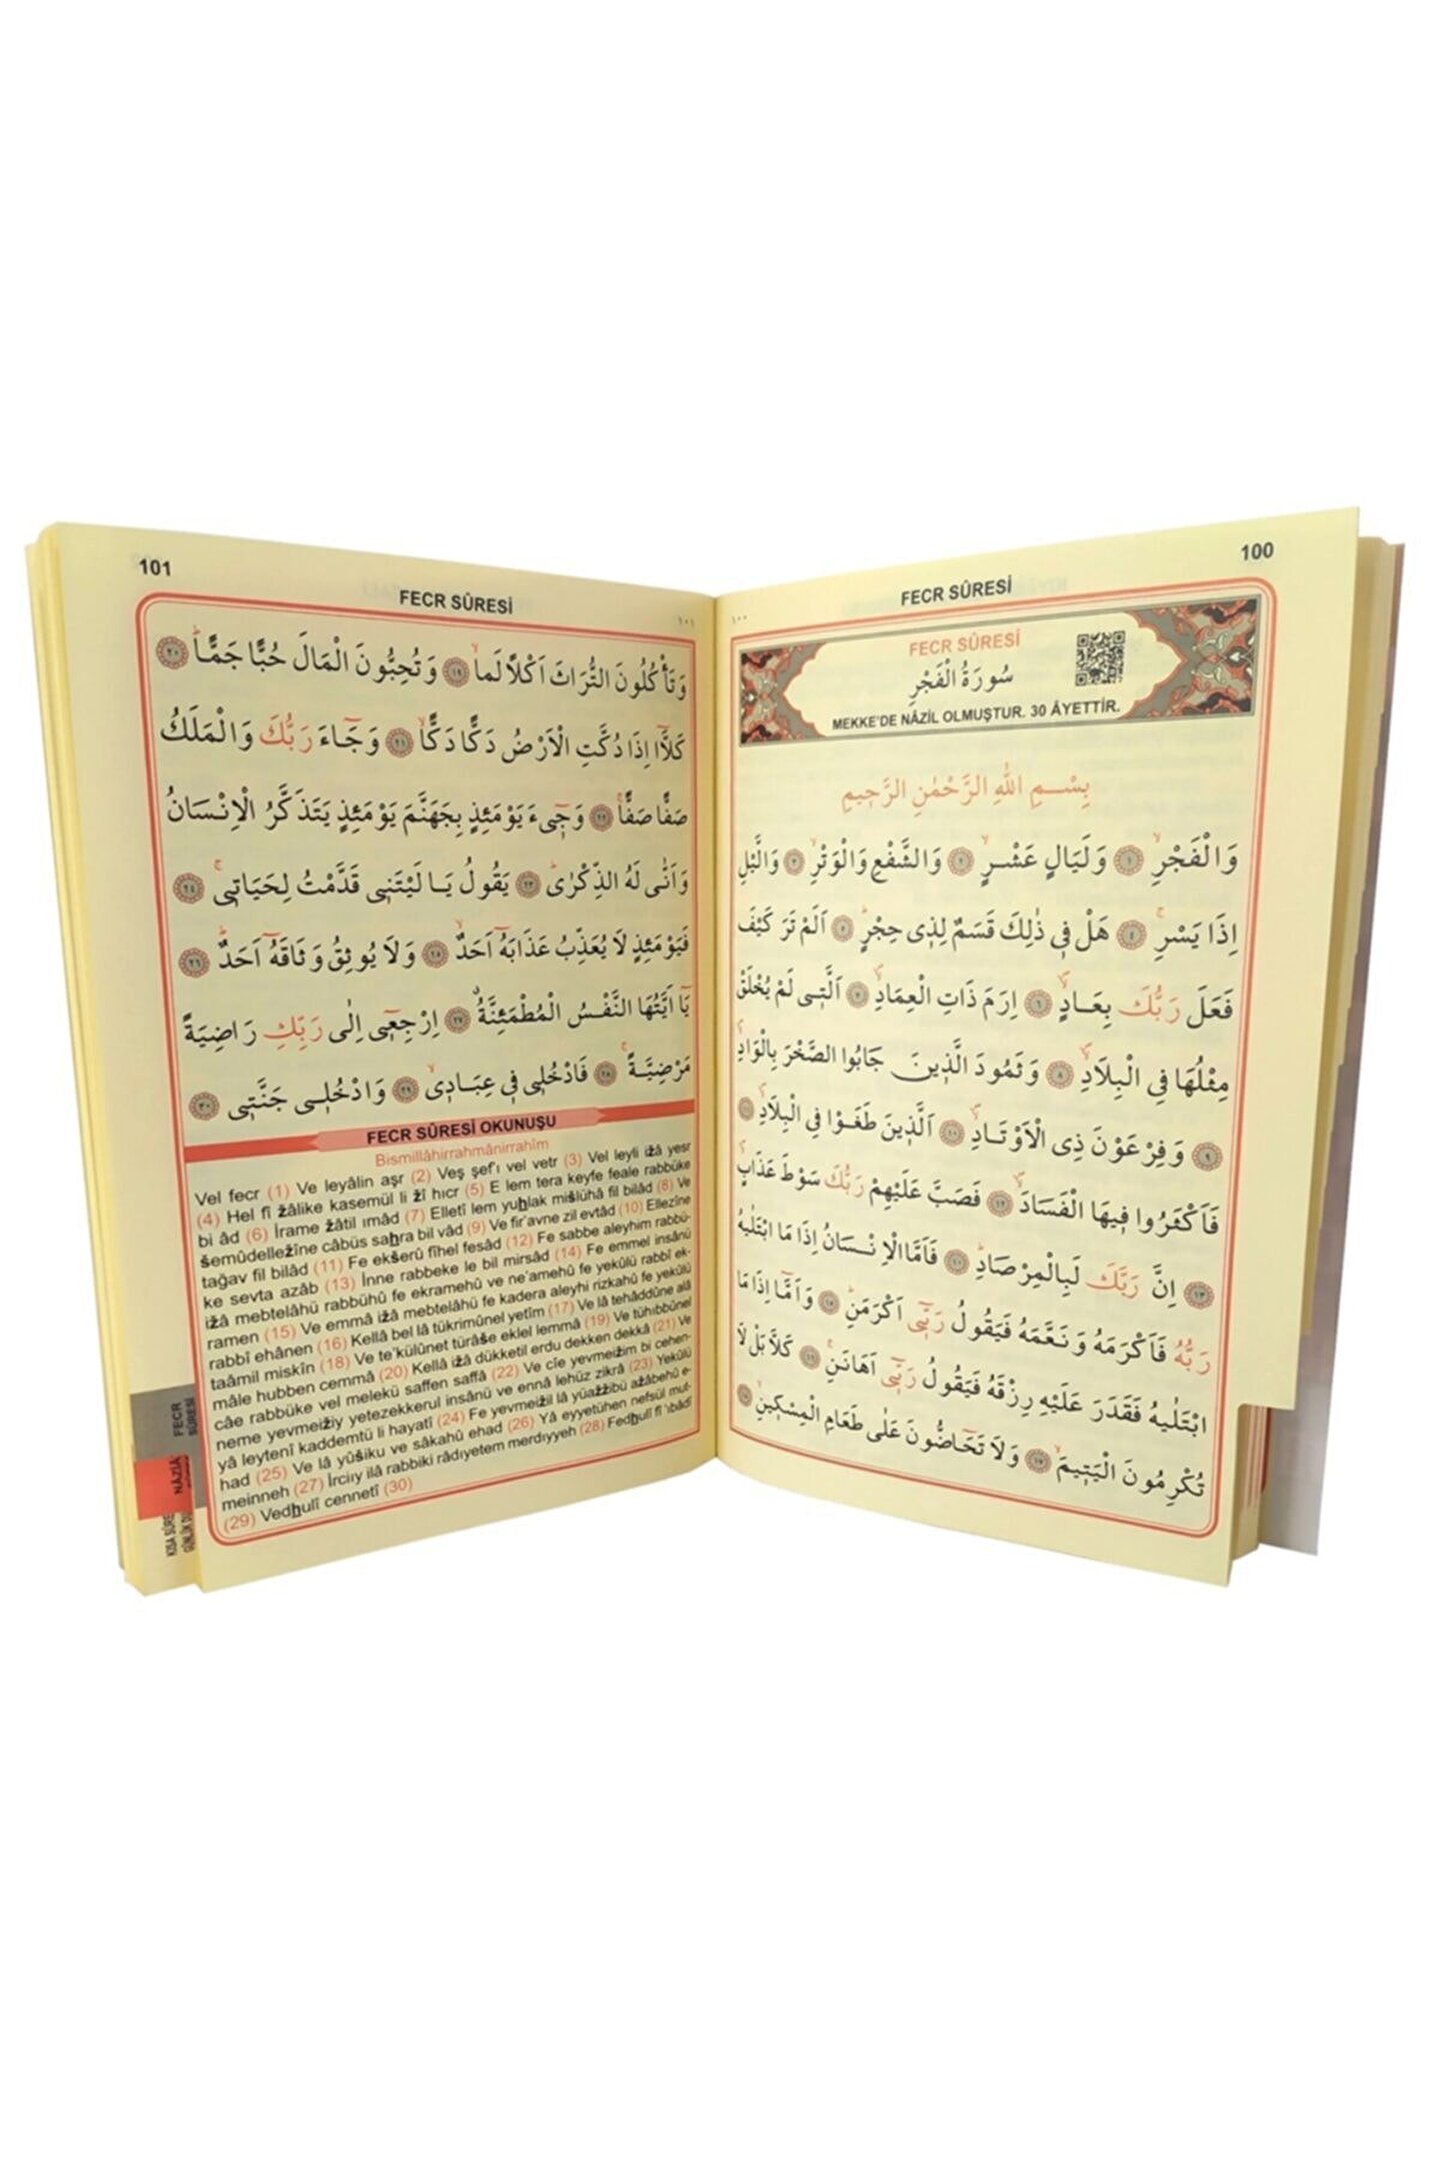 100
FECR SÛRESİ
١٠٠
FECR SÛRESİ
سُورَةُ الْفَجْرِ
MEKKE'DE NÂZİL OLMUŞTUR. 30 ÂYETTİR.
بِسْمِ اللهِ الرَّحْمٰنِ الرَّحِيمِ
وَالْفَجْرِۙ ﴿١﴾ وَلَيَالٍ عَشْرٍۙ ﴿٢﴾ وَالشَّفْعِ وَالْوَتْرِۙ ﴿٣﴾ وَالَّيْلِ
اِذَا يَسْرِۚ ﴿٤﴾ هَلْ فِي ذٰلِكَ قَسَمٌ لِذِي حِجْرٍۜ ﴿٥﴾ اَلَمْ تَرَ كَيْفَ
فَعَلَ رَبُّكَ بِعَادٍۙ ﴿٦﴾ اِرَمَ ذَاتِ الْعِمَادِۙ ﴿٧﴾ اَلَّتِي لَمْ يُخْلَقْ
مِثْلُهَا فِي الْبِلَادِۙ ﴿٨﴾ وَثَمُودَ الَّذِينَ جَابُوا الصَّخْرَ بِالْوَادِۙ
﴿٩﴾ وَفِرْعَوْنَ ذِي الْاَوْتَادِۙ ﴿١٠﴾ اَلَّذِينَ طَغَوْا فِي الْبِلَادِۙ ﴿١١﴾
فَاَكْثَرُوا فِيهَا الْفَسَادَۙ ﴿١٢﴾ فَصَبَّ عَلَيْهِمْ رَبُّكَ سَوْطَ عَذَابٍۙ
﴿١٣﴾ اِنَّ رَبَّكَ لَبِالْمِرْصَادِۜ ﴿١٤﴾ فَاَمَّا الْاِنْسَانُ اِذَا مَا ابْتَلٰيهُ
رَبُّهُ فَاَكْرَمَهُ وَنَعَّمَهُ فَيَقُولُ رَبِّٓي اَكْرَمَنِۜ ﴿١٥﴾ وَاَمَّٓا اِذَا مَا
ابْتَلٰيهُ فَقَدَرَ عَلَيْهِ رِزْقَهُ فَيَقُولُ رَبِّٓي اَهَانَنِۚ ﴿١٦﴾ كَلَّا بَلْ لَا
تُكْرِمُونَ الْيَتِيمَۙ ﴿١٧﴾ وَلَا تَحَٓاضُّونَ عَلٰى طَعَامِ الْمِسْكِينِۙ ﴿١٨﴾
101
FECR SÛRESİ
١٠١
وَتَأْكُلُونَ التُّرَاثَ اَكْلًا لَمًّاۙ ﴿١٩﴾ وَتُحِبُّونَ الْمَالَ حُبًّا جَمًّاۜ ﴿٢٠﴾
كَلَّٓا اِذَا دُكَّتِ الْاَرْضُ دَكًّا دَكًّاۙ ﴿٢١﴾ وَجَٓاءَ رَبُّكَ وَالْمَلَكُ
صَفًّا صَفًّاۚ ﴿٢٢﴾ وَجِٓيءَ يَوْمَئِذٍ بِجَهَنَّمَ يَوْمَئِذٍ يَتَذَكَّرُ الْاِنْسَانُ
وَاَنّٰى لَهُ الذِّكْرٰىۜ ﴿٢٣﴾ يَقُولُ يَا لَيْتَنِي قَدَّمْتُ لِحَيَاتِيۚ ﴿٢٤﴾
فَيَوْمَئِذٍ لَا يُعَذِّبُ عَذَابَهُٓ اَحَدٌۙ ﴿٢٥﴾ وَلَا يُوثِقُ وَثَاقَهُٓ اَحَدٌۜ ﴿٢٦﴾
يَٓا اَيَّتُهَا النَّفْسُ الْمُطْمَئِنَّةُۗ ﴿٢٧﴾ اِرْجِعِٓي اِلٰى رَبِّكِ رَاضِيَةً
مَرْضِيَّةًۚ ﴿٢٨﴾ فَادْخُلِي فِي عِبَادِيۙ ﴿٢٩﴾ وَادْخُلِي جَنَّتِي ﴿٣٠﴾
FECR SÛRESİ OKUNUŞU
Bismillâhirrahmânirrahîm
Vel fecr (1) Ve leyâlin aşr (2) Veş şef'ı vel vetr (3) Vel leyli iżâ yesr
(4) Hel fî żâlike kasemül li żî hıcr (5) E lem tera keyfe feale rabbüke
bi âd (6) İrame żâtil ımâd (7) Elletî lem yuhlak mišlühâ fil bilâd (8) Ve
šemûdelležîne câbüs sahra bil vâd (9) Ve fir'avne zil evtâd (10) Ellezîne
tağav fil bilâd (11) Fe ekšerû fîhel fesâd (12) Fe sabbe aleyhim rabbü-
ke sevta azâb (13) İnne rabbeke le bil mirsâd (14) Fe emmel insânü
iżâ mebtelâhü rabbühû fe ekramehû ve ne'amehû fe yekûlü rabbî ek-
ramen (15) Ve emmâ iżâ mebtelâhü fe kadera aleyhi rizkahû fe yekûlü
rabbî ehânen (16) Kellâ bel lâ tükrimûnel yetîm (17) Ve lâ tehâddûne alâ
taâmil miskîn (18) Ve te'külûnet türâše eklel lemmâ (19) Ve tühıbbûnel
mâle hubben cemmâ (20) Kellâ iżâ dükketil erdu dekken dekkâ (21) Ve
câe rabbüke vel melekü saffen saffâ (22) Ve cîe yevmeižim bi cehen-
neme yevmeižiy yetezekkerul insânü ve ennâ lehüz zikrâ (23) Yekûlü
yâ leytenî kaddemtü li hayatî (24) Fe yevmeižil lâ yüażżibü ażâbehû e-
had (25) Ve lâ yûšiku ve sâkahû ehad (26) Yâ eyyetühen nefsül mut-
meinneh (27) İrciıy ilâ rabbiki râdıyetem merdıyyeh (28) Fedhulî fî 'ıbâdî
(29) Vedhulî cennetî (30)
FECR
SÛRESİ
NÂZİÂ
KISA SÛRE
GÜNLÜK DU